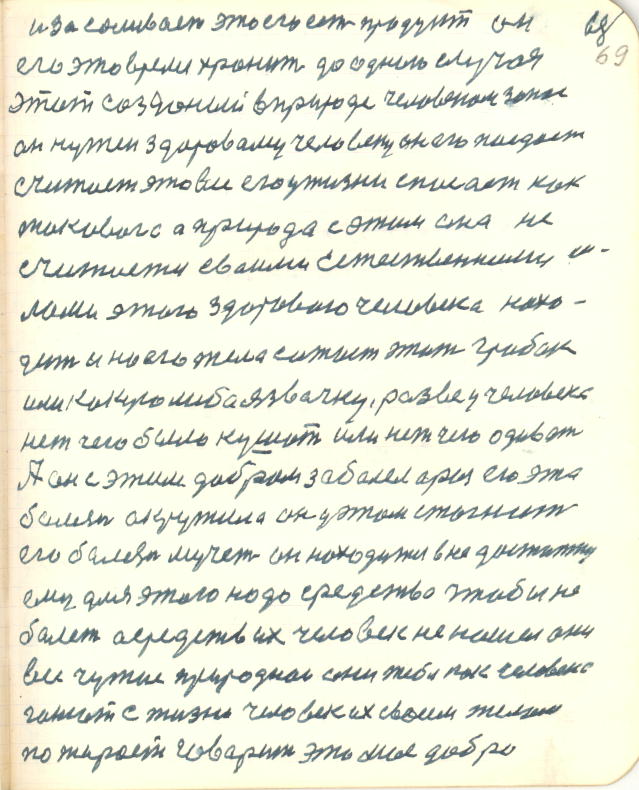 и засоливает это его сот продукт он 68
69
его это время хранит до одного случая
этот созданый в природе человеком запас
он нужен здоровому человеку он его поедает
считает это все его у жизни спасает как
такового а природа с этим она не
считается своими естественными си-
лами этого здорового человека нахо-
дит и на его тела сажает этот грибок
или какую либо язвачку, разве у человека
нет чего было кушат или нет чего одеват
А он с этим добром заболел его эта
болезн окружила он у этом стогнит
его болезн мучет он находижи в не достатку
ему для этого надо средство чтобы не
болет а средств их человек не нашел они
все чужие природнаи они тебя как человека
гонют с жизни человек их своем телом
пожирает говарит это мое добро